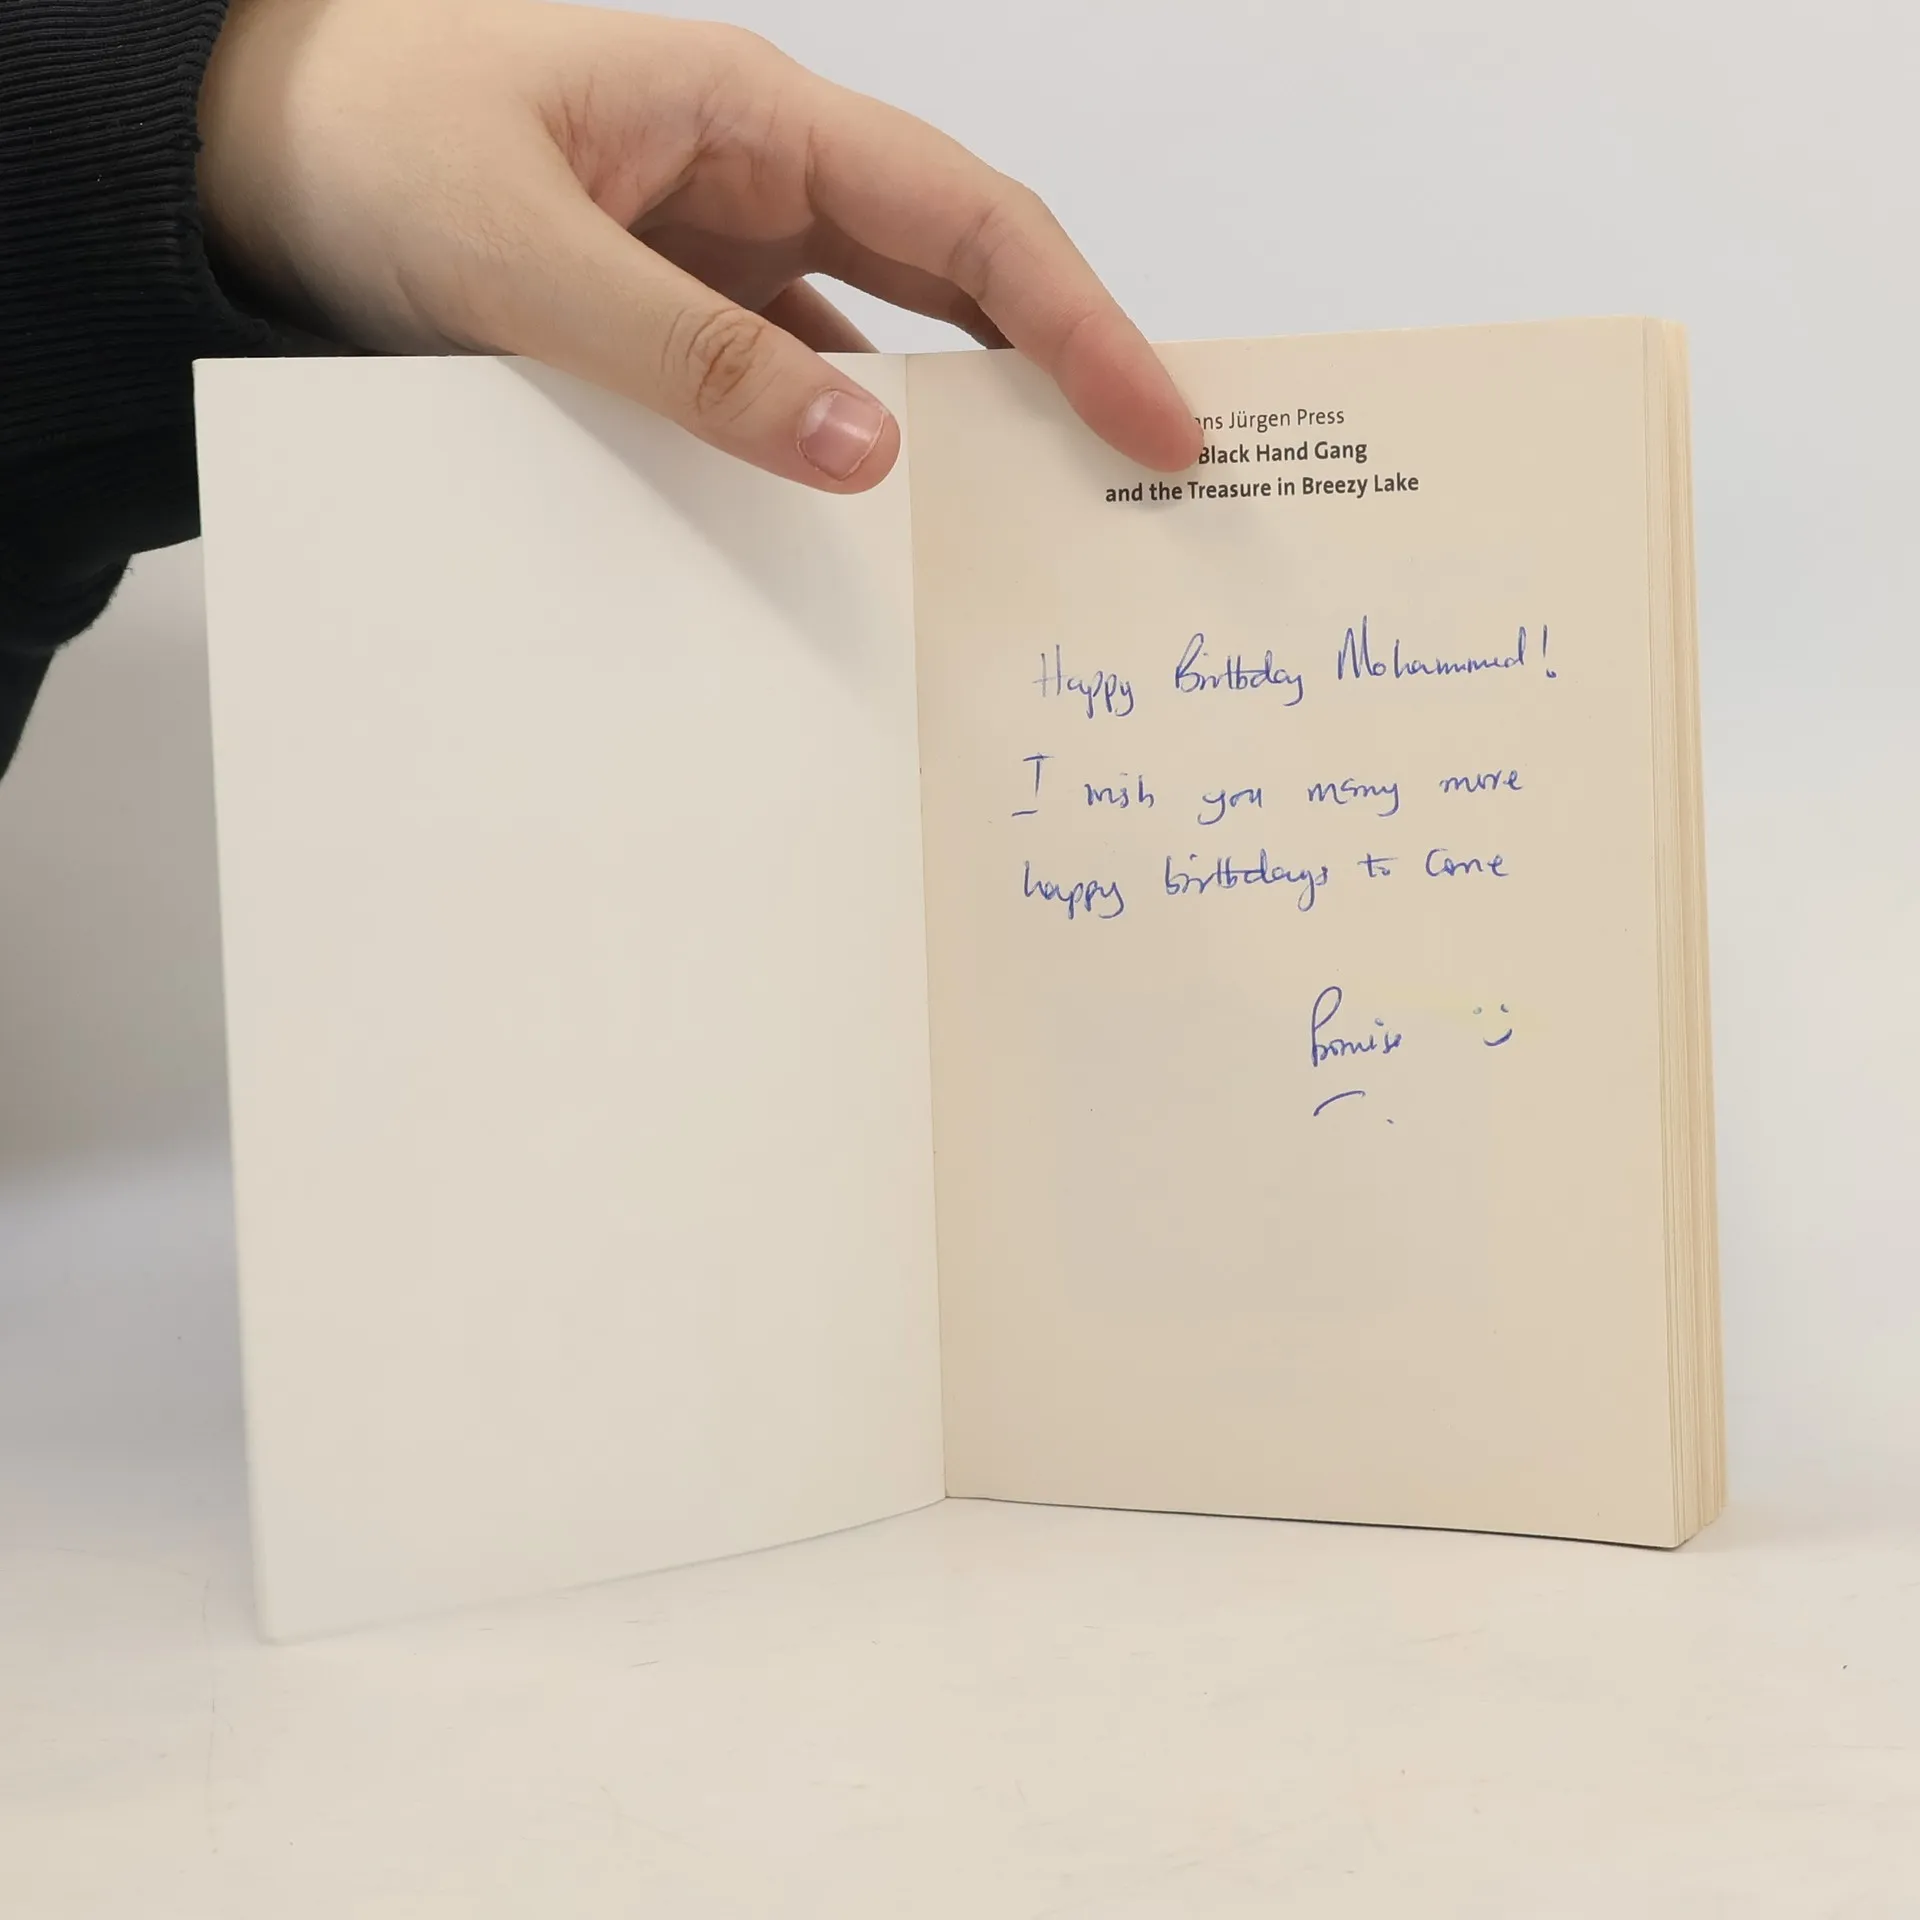 ns Jürgen Press
Black Hand Gang
and the Treasure in Breezy Lake
Happy Birthday Mohammed!
I wish you many more
happy birthdays to come
Promise :)